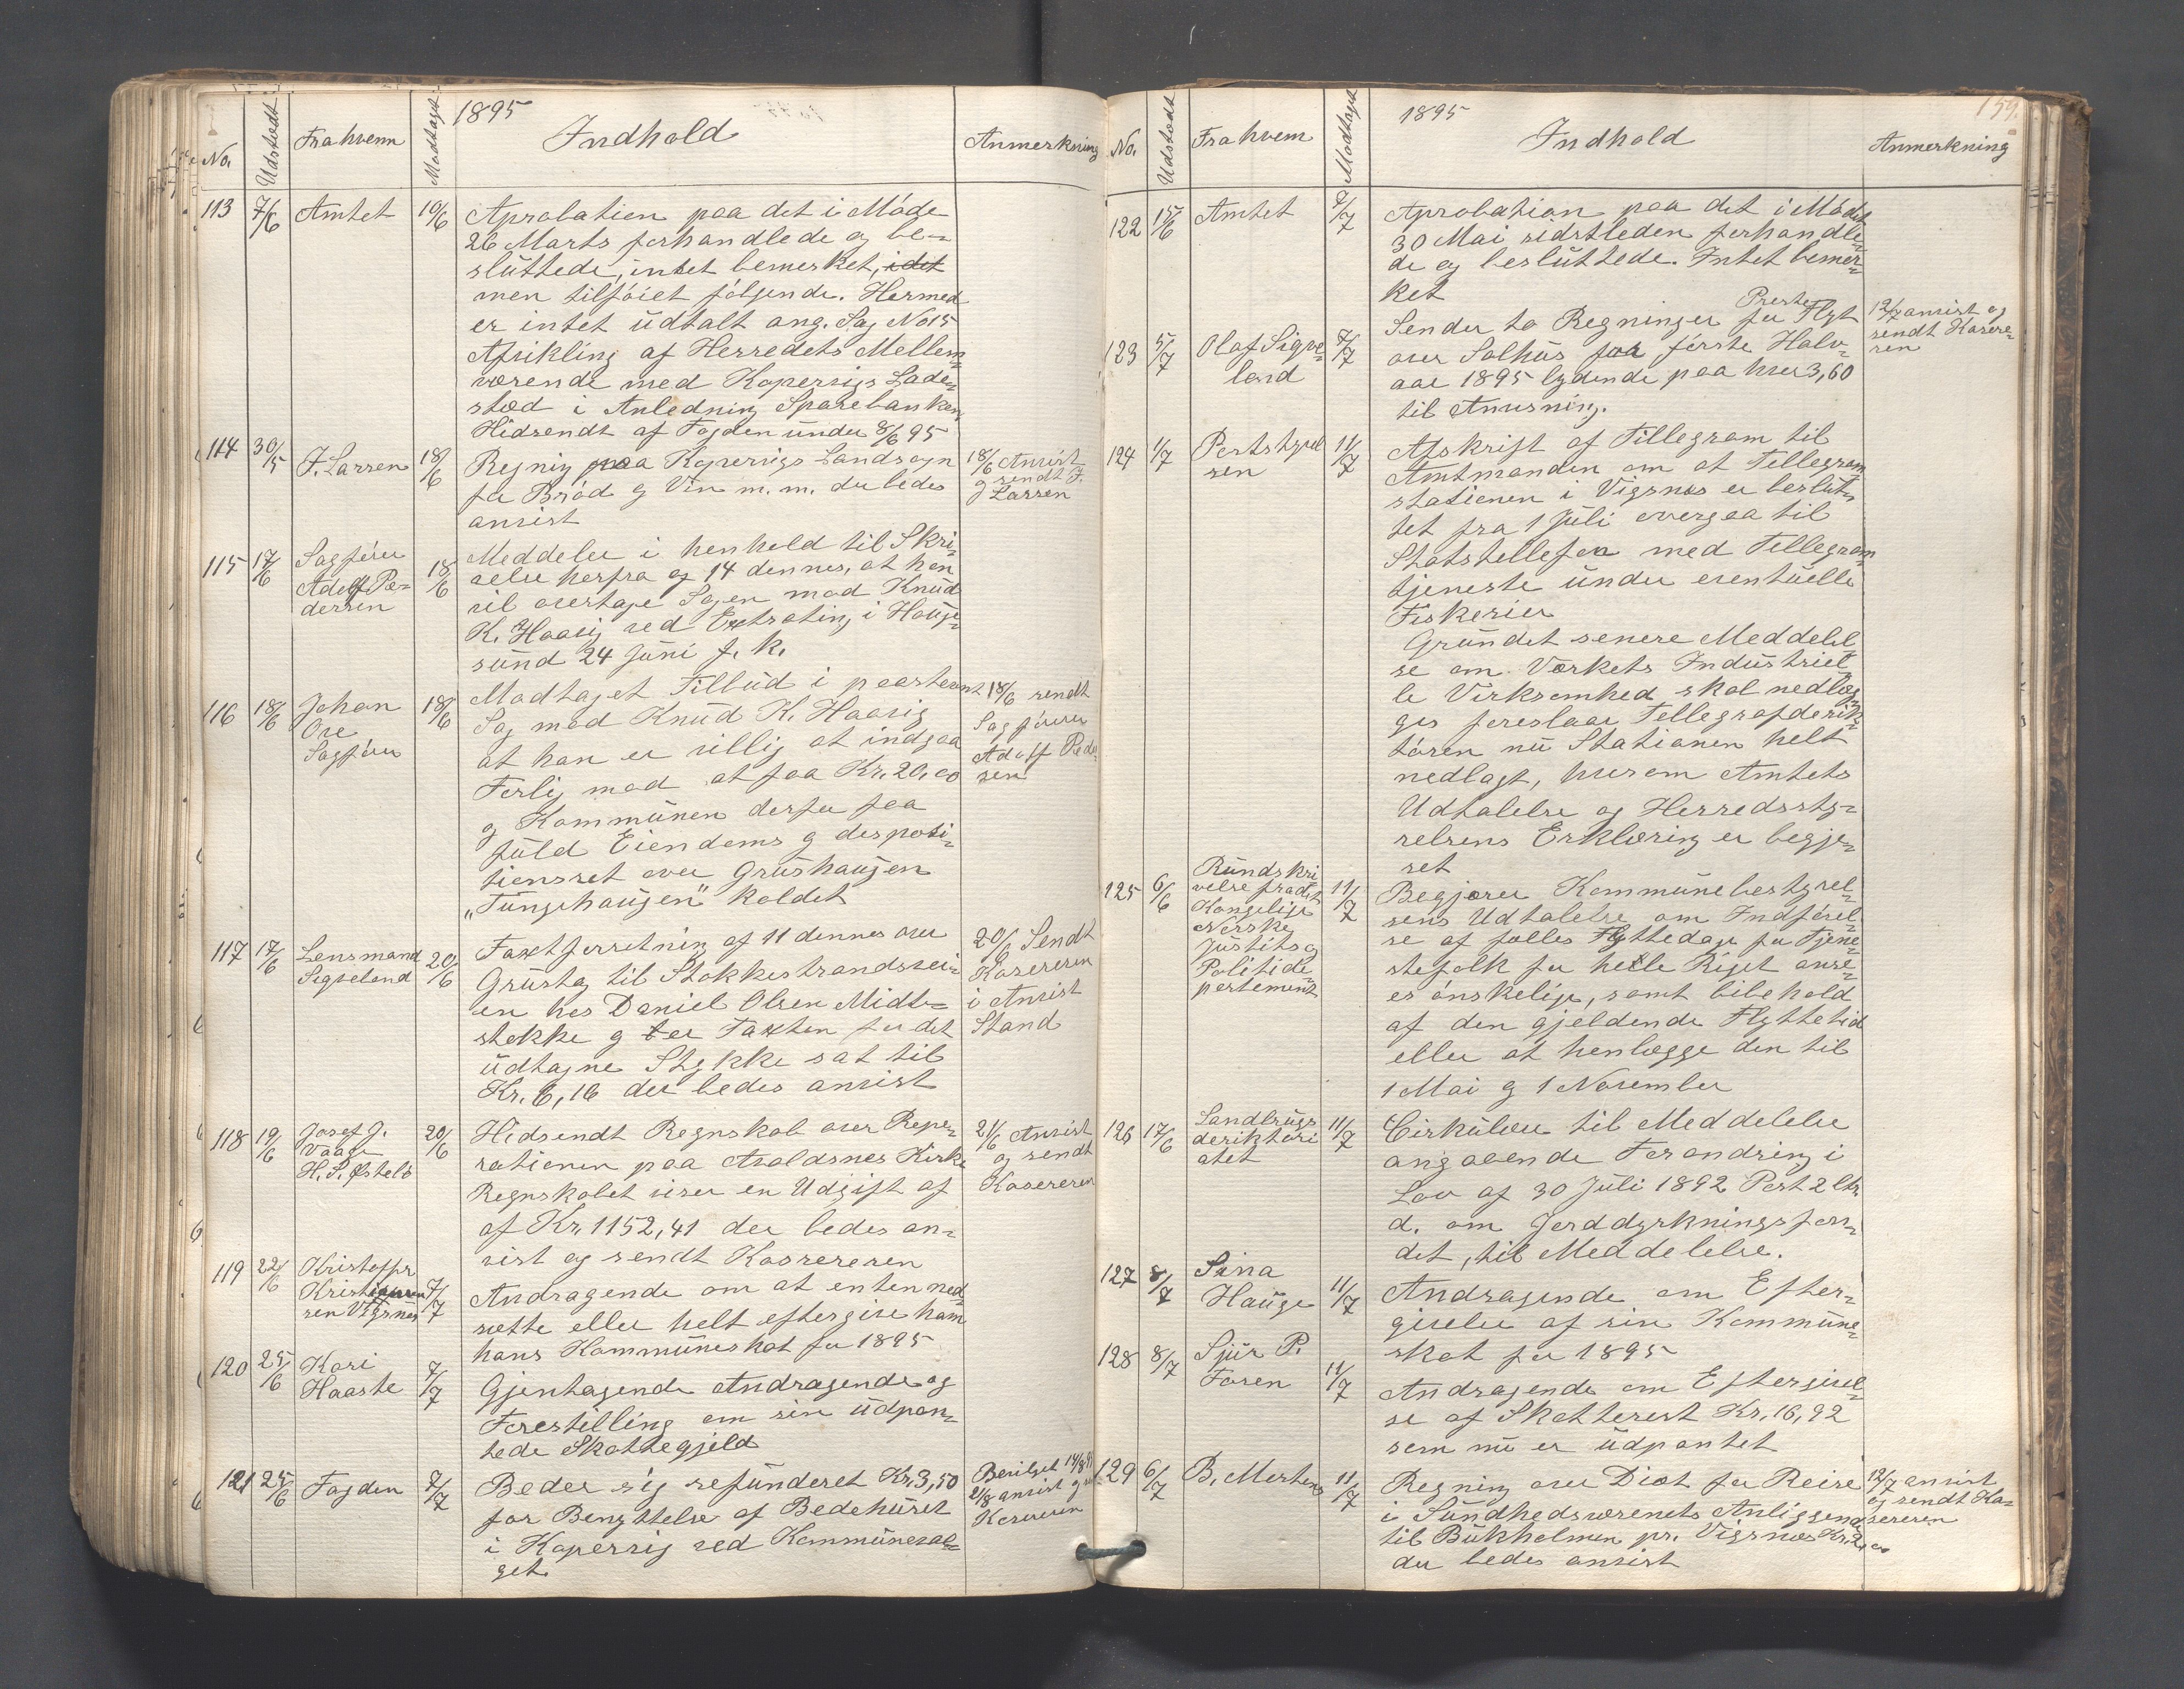 1895
No. Udstædt Fra hvem Modtaget Indhold Anmerkning
113 7/6 Amtet 10/6 Aprobation paa det i Møde
26 Marts forhandlede og be-
sluttede, intet bemerket, idet
men tilføiet følgende. Hermed
er intet udtalt ang. Sag No 15
Afvikling af Herredets Mellem-
værende med Kopervigs Lade-
stad i Anledning Sparebanken
Hidsendt af Fogden under 8/6 95
114 30/5 J. Larsen 18/6 Regning paa Kopervigs Landsogn
for Brød og Vin m. m. der bedes
anvist
18/6 Anvist
og sendt J.
Larsen
115 17/6 Sagfører
Adolf Pe-
dersen
18/6 Meddeler i henhold til Skri-
velse herfra af 14 dennes, at han
vil overtage Sagen mod Knud
K. Haavig ved Extrating i Hauge-
sund 24 Juni f. k.
116 18/6 Johan
Ore
Sagfører
18/6 Modtaget Tilbud i paastevnt
Sag mod Knud K. Haavig
at han er villig at indgaa
Forlig mod at faa Kr. 20,00
og Kommunen derfor faa
fuld Eiendoms og desposi-
tionsret over Grushaugen
„Tungehaugen" kaldet
18/6 sendt
Sagfører
Adolf Peder-
sen
117 17/6 Lensmand
Sigveland
20/6 Taxtforretning af 11 dennes over
Grustag til Stokkestrandsvei-
en hos Daniel Olsen Midt-
stokke og er Taxten for det
udtagne Stykke sat til
Kr. 6,16 der bedes anvist
20/6 Sendt
Kasereren
i Anvist
Stand
118 19/6 Josef J.
Vaage
H. S. Østelø
20/6 Hidsendt Regnskab over Repe-
rationen paa Avaldsnes Kirke
Regnskabet viser en Udgift af
af Kr. 1152,41 der bedes an-
vist og sendt Kassereren
21/6 Anvist
og sendt
Kasereren
119 22/6 Kristoffer
Kristiansen
sen Vigsnes
7/7 Andragende om at enten ned-
sætte eller helt eftergive ham
hans Kommuneskat for 1895
120 25/6 Kari
Haaste
7/7 Gjentagende Andragende og
Forestilling om sin udpan-
tede Skattegjeld
121 25/6 Fogden 7/7 Beder sig refunderet Kr. 3,50
for Benyttelse af Bedehuset
i Kopervig ved Kommuneval-
get
Bevilget 14/8
21/8 anvist og
Kasereren
1895
159.
No. Udstædt Fra hvem Modtaget Indhold Anmerkning
122 15/6 Amtet 2/7 Aprobation paa det i Mødet
30 Mai sidstleden forhandle-
de og besluttede. Intet bemer-
ket
123 5/7 Olaf Sigve-
land
7/7 Sender to Regninger for Preste Flyt
over Salhus for første Halv-
aar 1895 lydende paa hver 3,60
til Anvisning.
12/7 anvist og
sendt Kasere-
ren
124 1/7 Poststyrel
sen
11/7 Afskrift af Tillegram til
Amtmanden om at Tellegram
stationen i Vigsnes er beslut-
tet fra 1 Juli overgaa til
Statstellefon med Tellegram
tjeneste under eventuelle
Fiskerier
Grundet senere Meddelel-
se om Værkets Industriel-
le Virksomhed skal nedlæg-
ges foreslaar Tellegrafderik-
tøren nu Stationen helt
nedlagt, hvorom Amtets
Udtalelse og Herredssty-
relsens Erklæring er begjæ-
ret
125 6/6 Rundskri
velse fra det
Kongelige
Norske
Justits og
Politide-
partement
11/7 Begjærer Kommunebestyrel-
sens Udtalelse om Indførel-
se af fælles Flyttedage for Tjene-
stefolk for hele Riget anse-
es ønskelige, samt bibehold
af den gjeldende Flyttetid
eller at henlægge den til
1 Mai og 1 November
126 17/6 Landbrugs
deriktøri
atet
11/7 Cirkulære til Meddelelse
angaaende Forandring i
Lov af 30 Juli 1892 Post 2 Ltr
d. om Jorddyrkningsfon-
det, til Meddelelse.
127 8/7 Sina
Hauge
11/7 Andragende om Efter-
givelse af sin Kommune-
skat for 1895
128 8/7 Sjur P.
Føsen
11/7 Andragende om Eftergivel-
se af Skatterest Kr. 16,92
som nu er udpantet
129 6/7 B. Mertens 11/7 Regning over Diæt for Reise
i Sundhedsværenets Anliggende
til Bukholmen pr. Vigsnæs Kr. 2,00
der bedes anvist
12/7 anvist
og sendt Ka-
sereren